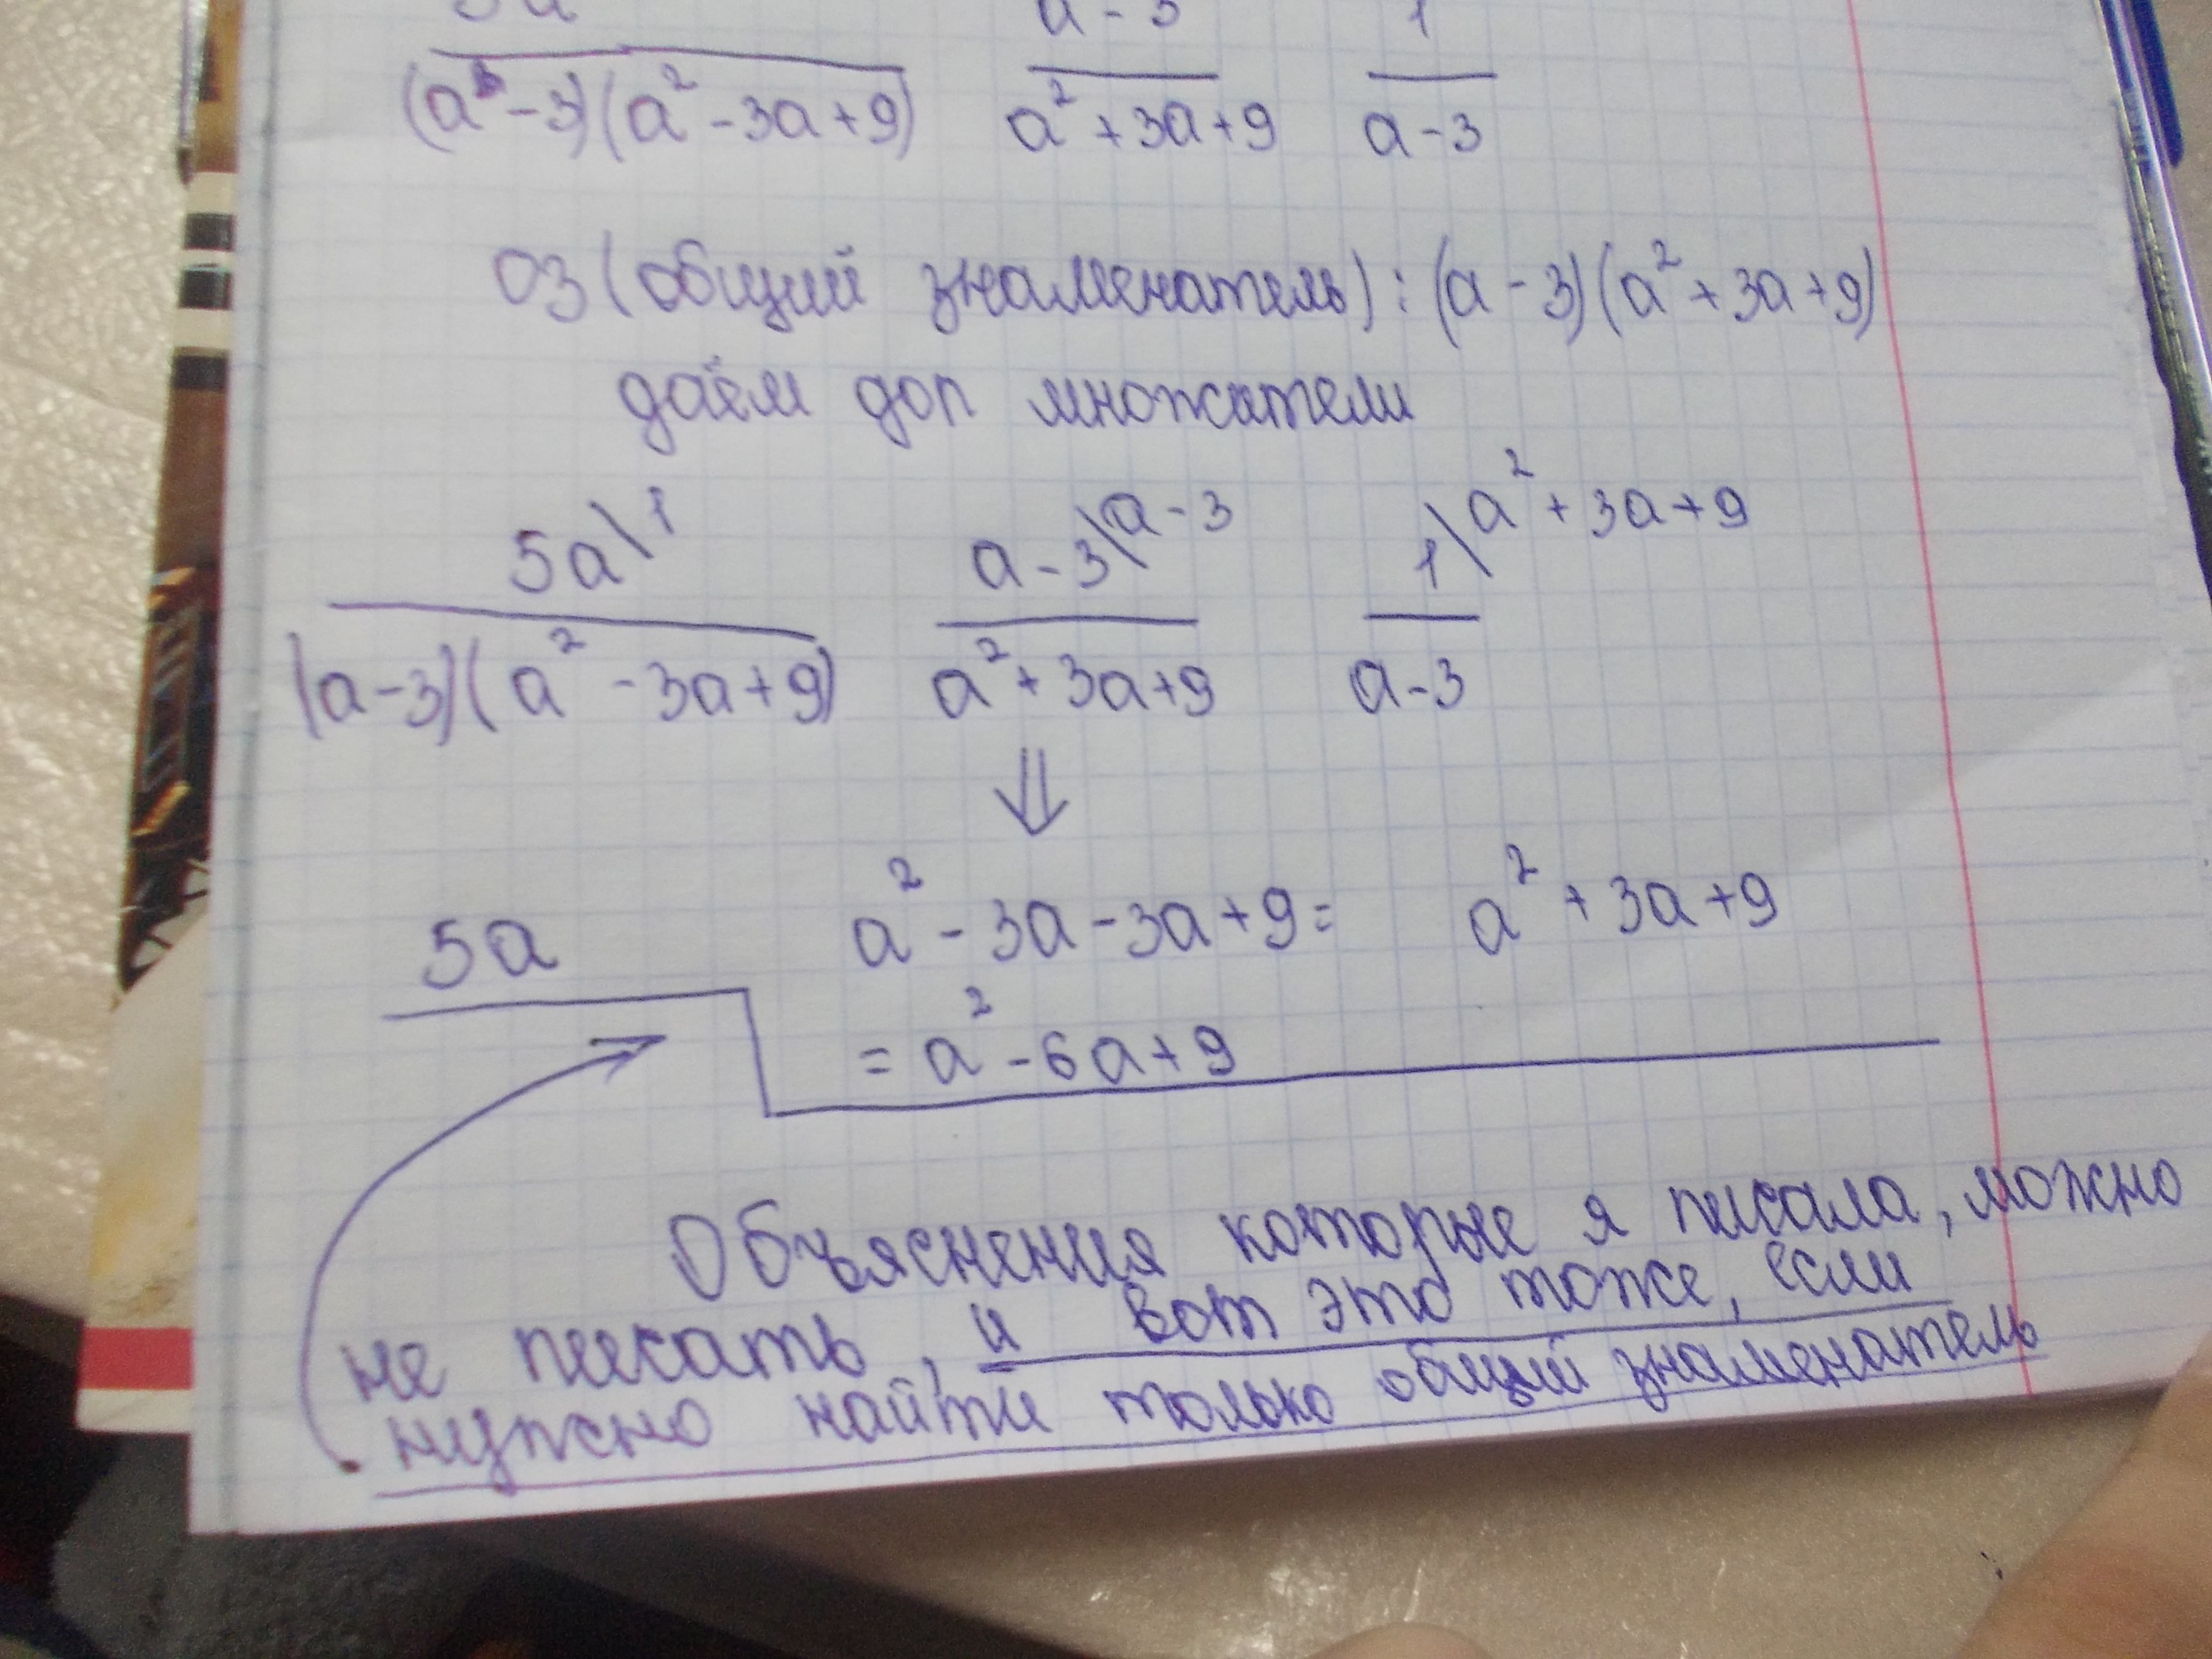 5a a - 3 1
(a - 3)(a² - 3a + 9) a² + 3a + 9 a - 3
ОЗ (общий знаменатель) : (a - 3)(a² + 3a + 9)
даём доп множатели
5a\1 a - 3\a - 3 1\a² + 3a + 9
(a - 3)(a² - 3a + 9) a² + 3a + 9 a - 3
⇓
5a a² - 3a - 3a + 9 = a² + 3a + 9
= a² - 6a + 9
Объяснения которые я писала, можно
не писать, и вот это тоже, если
нужно найти только общий знаменатель